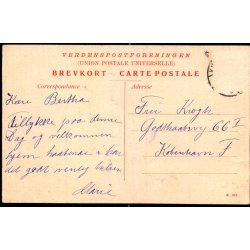 VERDENSPOSTFORENINGEN
(UNION POSTALE UNIVERSELLE)
BREVKORT - CARTE POSTALE
Correspondance
Adresse
Kære Bertha
Tillykke paa denne
Dag og velkommen
hjem
det godt venlig hilsen
Marie
Frk Krogh
Godthaabsvej 66 I
København F